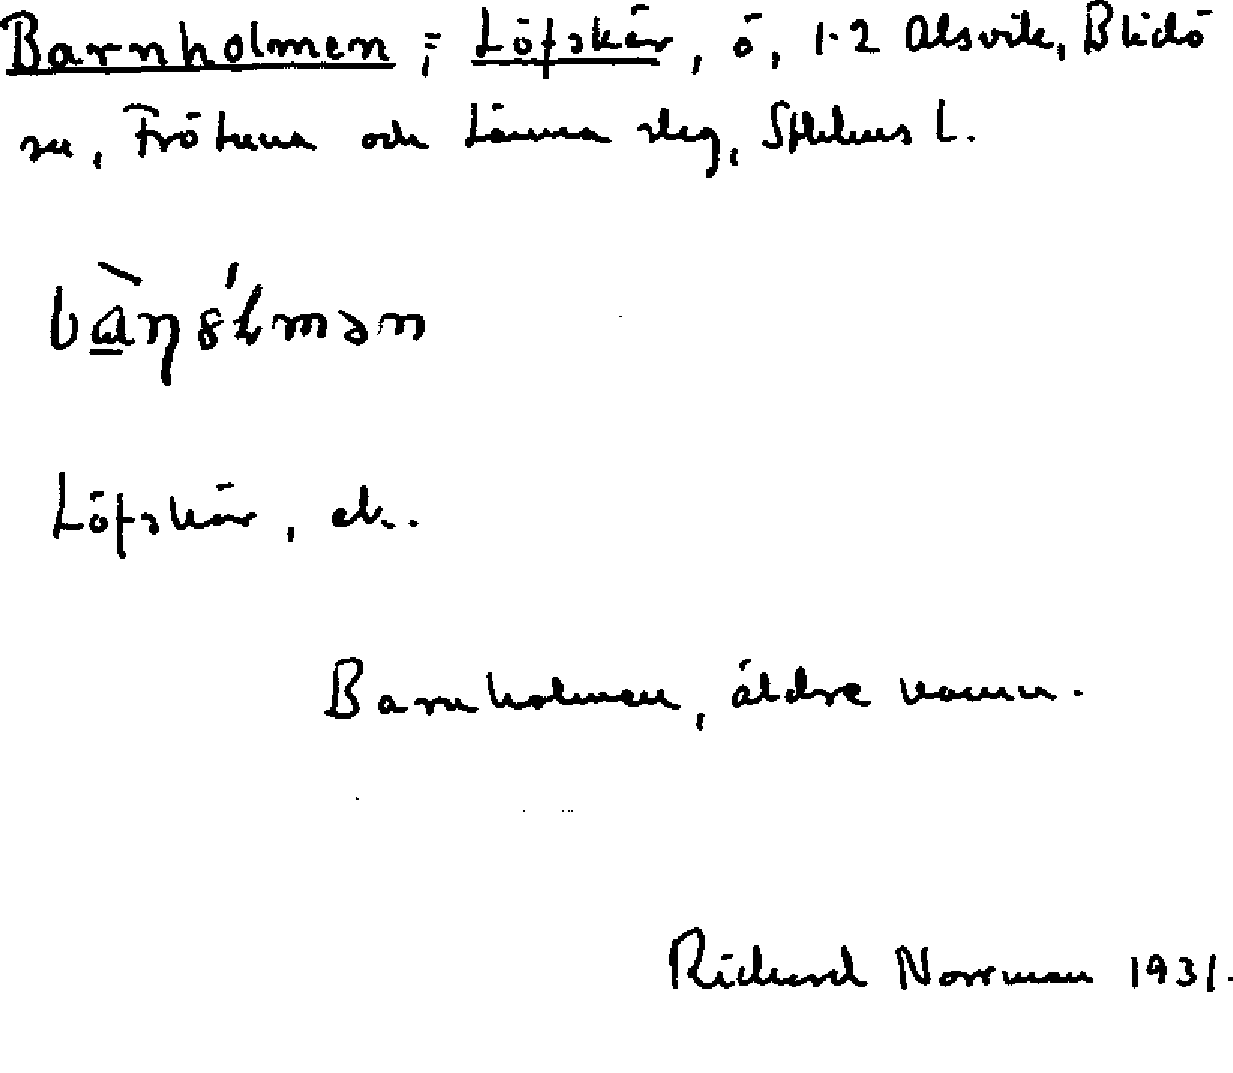 Barnholmen ; Löfskär, ö, 1-2 Alsvik, Blidö
sn, Frötuna och Länna slg, Sthlms L.
Löfskär, ek.
Barnholmen, äldre namn.
Richard Norrman 1931.